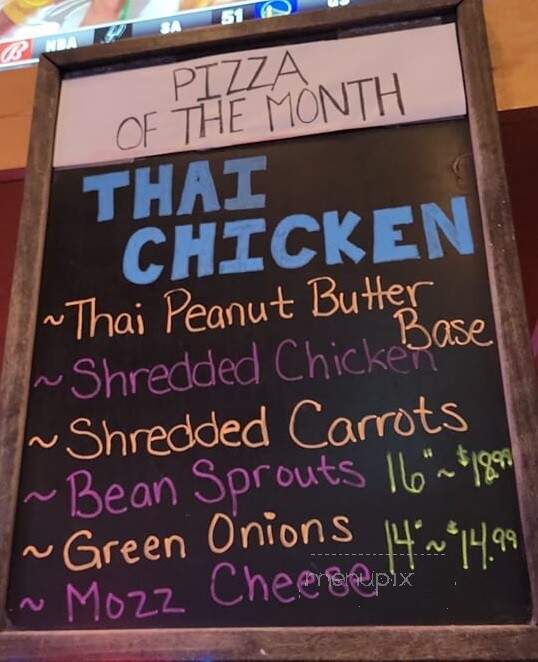 NBA SA 51
PIZZA
OF THE MONTH
THAI
CHICKEN
~Thai Peanut Butter
Base
~Shredded Chicken
~Shredded Carrots
~Bean Sprouts 16"~$18.99
~Green Onions 14"~$14.99
~Mozz Cheese
menupix